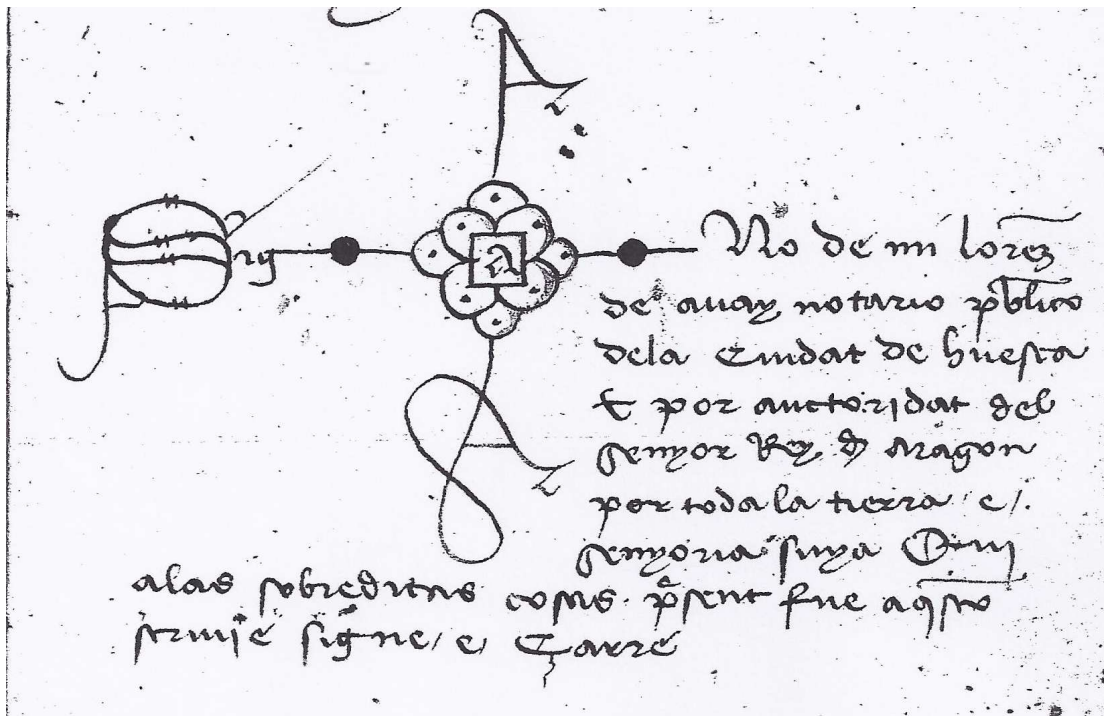 Sig No de mi lorez
de auay notario publico
dela Ciudat de huesca
E por auctoridat del
senyor Rey d aragon
por toda la tierra e
senyoria suya Qui
alas sobreditas cosas psent fue aqsto
scriuie signe e Çarre